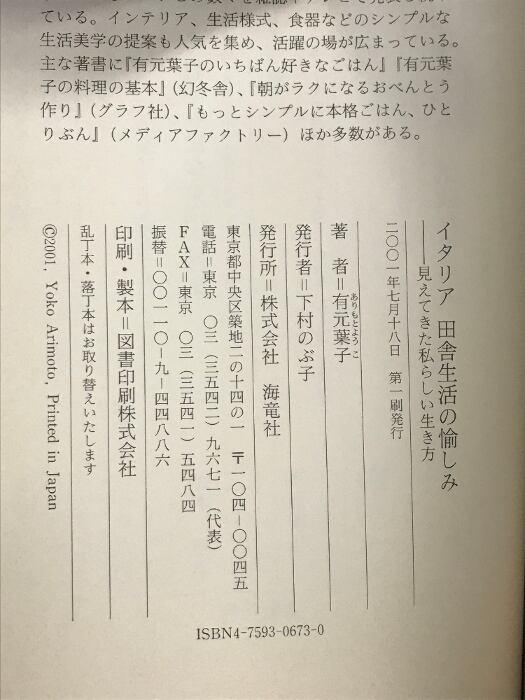 ている。インテリア、生活様式、食器などのシンプルな
生活美学の提案も人気を集め、活躍の場が広まっている。
主な著書に『有元葉子のいちばん好きなごはん』『有元葉
子の料理の基本』（幻冬舎）、『朝がラクになるおべんとう
作り』（グラフ社）、『もっとシンプルに本格ごはん、ひと
りぶん』（メディアファクトリー）ほか多数がある。
イタリア 田舎生活の愉しみ
――見えてきた私らしい生き方
二〇〇一年七月十八日 第一刷発行
著 者＝有元葉子
ありもとようこ
発行者＝下村のぶ子
発行所＝株式会社 海竜社
東京都中央区築地二の十四の一 〒一〇四―〇〇四五
電話＝東京 〇三（三五四二）九六七一（代表）
ＦＡＸ＝東京 〇三（三五四一）五四八四
振替＝〇〇一一〇―九―四四八八六
印刷・製本＝図書印刷株式会社
乱丁本・落丁本はお取り替えいたします
©2001, Yoko Arimoto, Printed in Japan
ISBN4-7593-0673-0